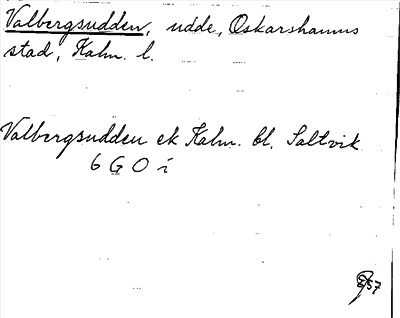 Valbergsudden, udde, Oskarshamns
stad, Kalm. l.
Valbergsudden ek Kalm. bl. Saltvik
6 G 0 i